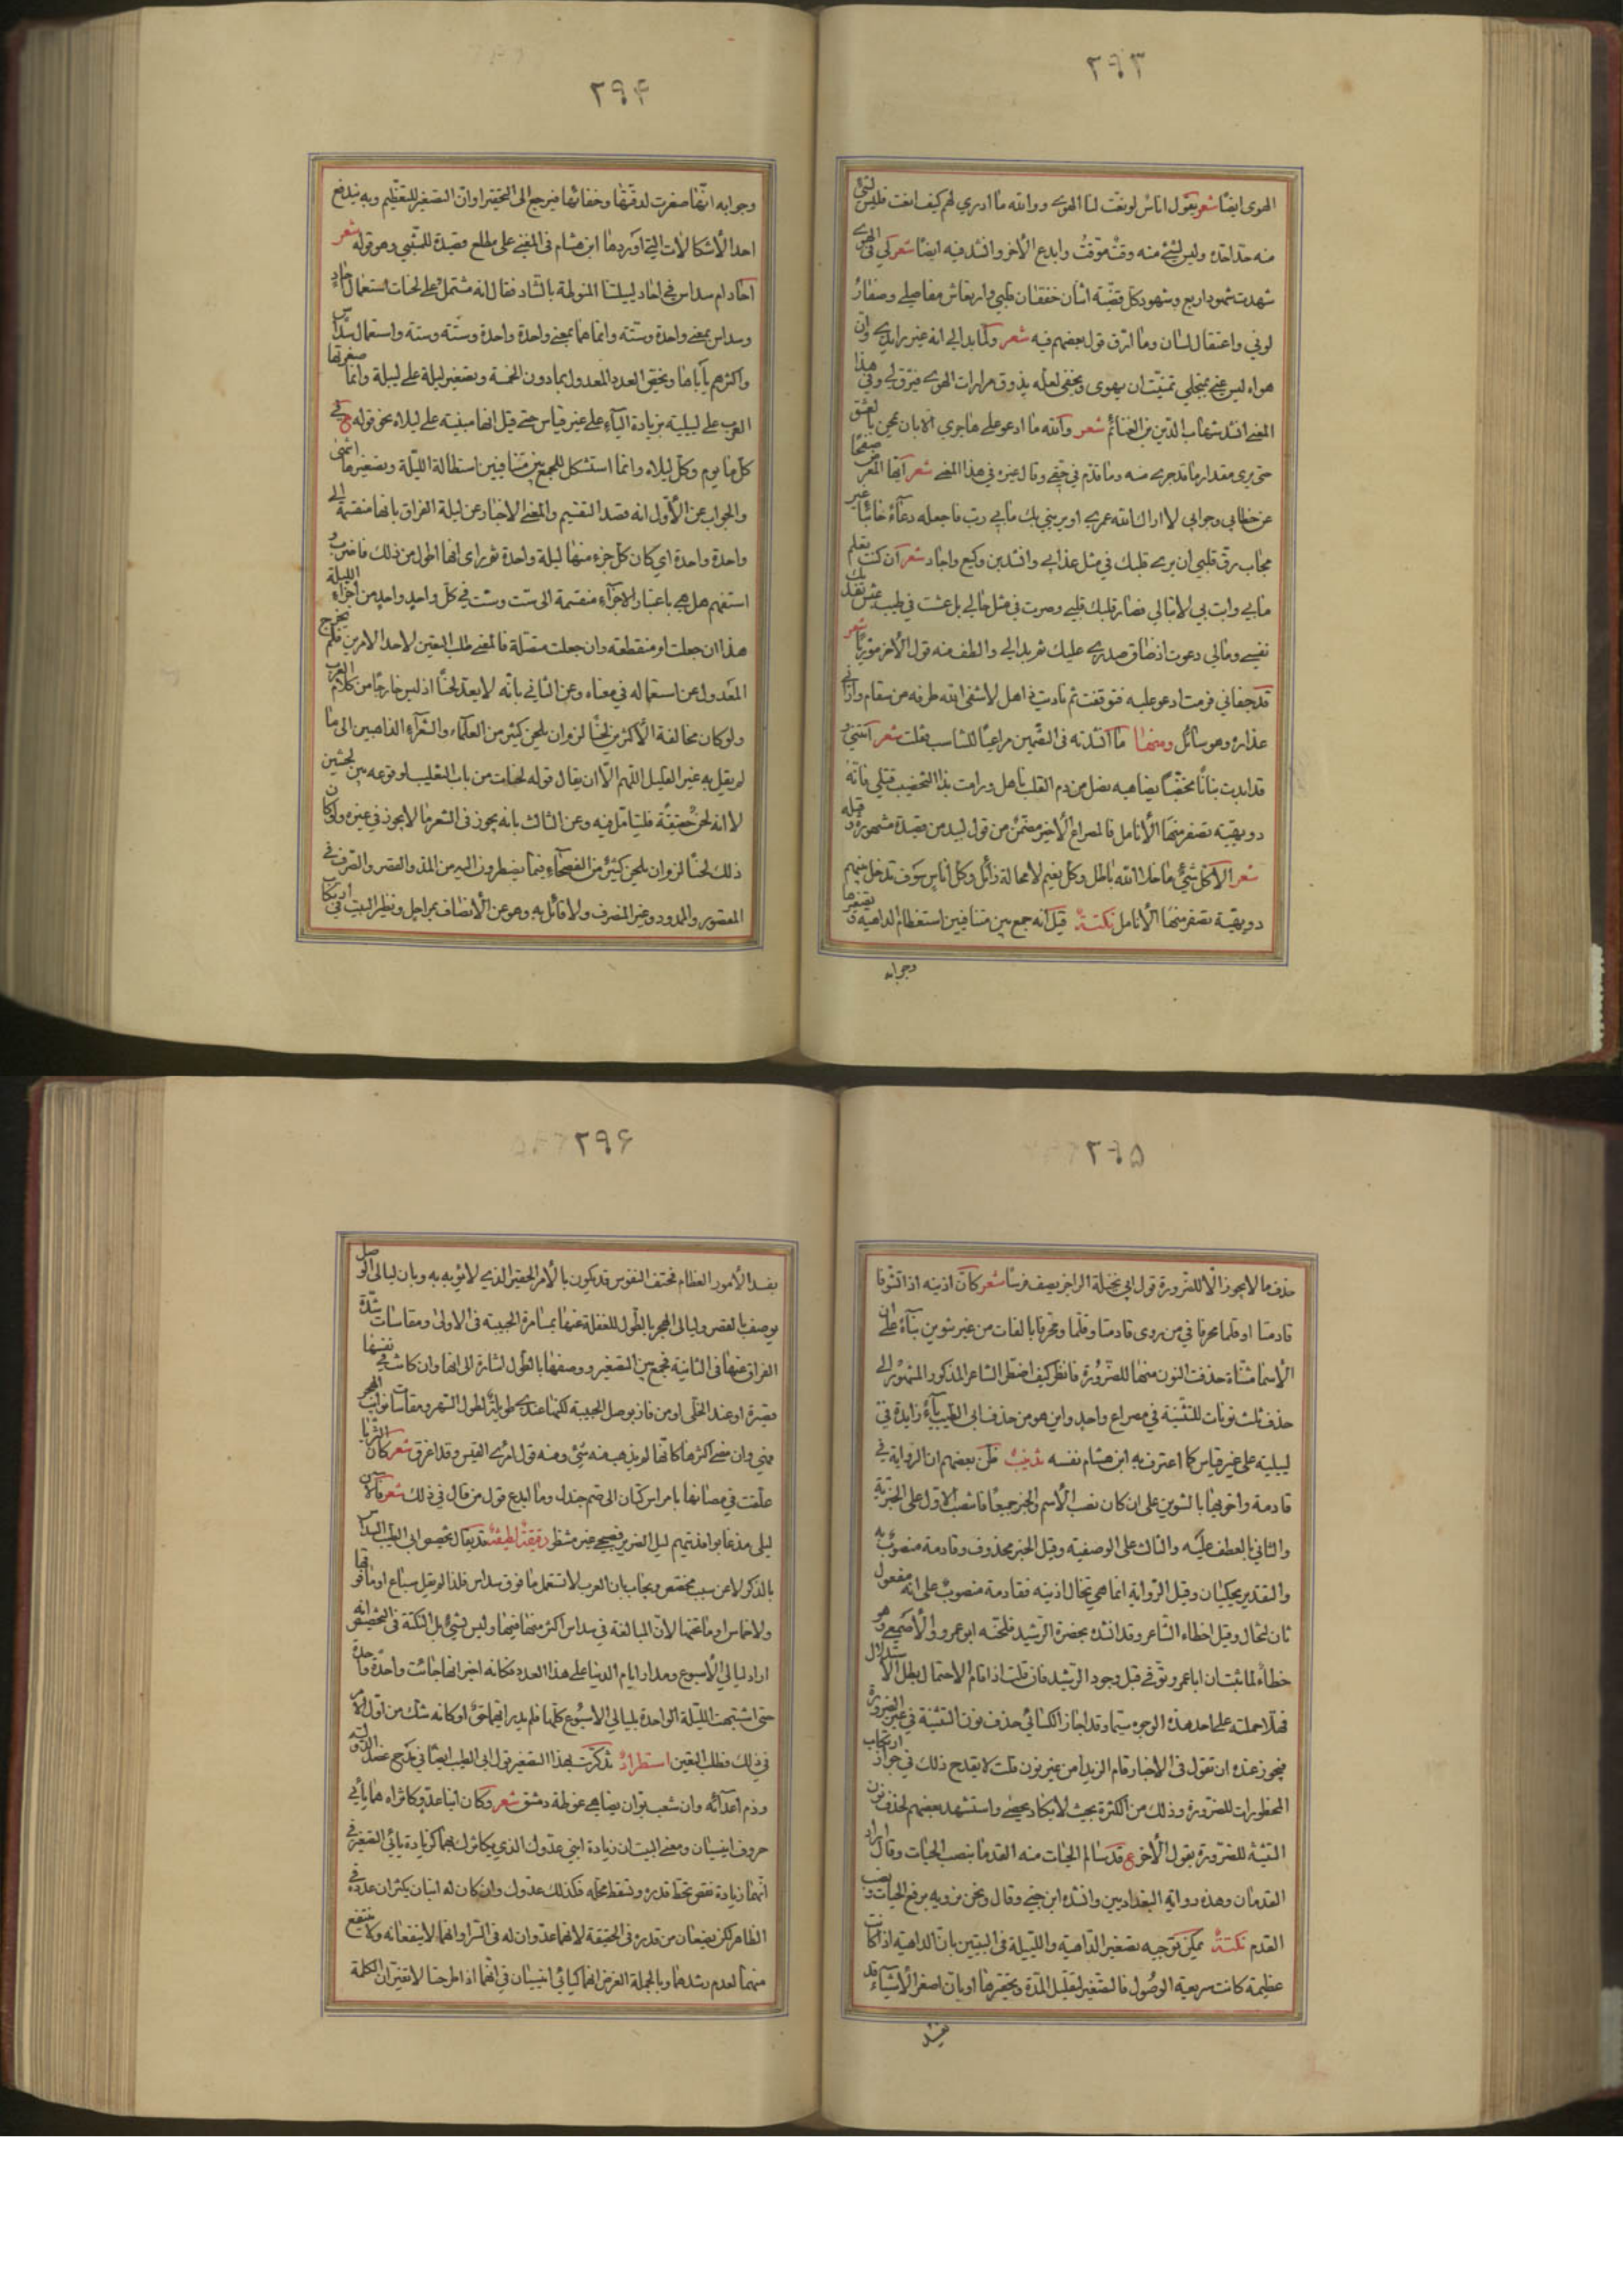 ٢٩٣
الهوى ايضًا شعر يقول اناس لو نعت لنا الهوى ووالله ما ادري لهم كيف انعت فليس لشئ
منه حد احده وليس لشئ منه وقت موقت وابدع الآخر وانشد فيه ايضًا شعر لي في الهوى
شهدت شهود اربع وشهود كل قضية اثنان خفقان قلبي وارتعاش مفاصلي وصفار
لوني واعتقال لسان وما ارق قول بعضهم فيه شعر ولما بدا لي انه غير زايدي وان
هواه ليس عني بمنجلي تمنيت ان يهوى ويخفى لعله يذوق مرارات الهوى فيرق لي وفي هذا
المعنى انشد شهاب الدين بن الغنائم شعر والله ما ادعو على هاجري الا بان يمحن بالعشق
حتى يرى مقدار ما قد جرى منه وما قد تم في حقي وقال غيره في هذا المعنى شعر ايها المعرض صفحًا
عن خطابي وجوابي لا اراك الله عمري او يريني بك ما بي رب فاجعله دعاءً خائبًا غير
مجاب رق قلبي ان يرى قلبك في مثل عذابي وانشد ابن وكيع واجاد شعر ان كنت تعلم
ما بي وانت بي لا تبالي فصار قلبك قلبي وصرت في مثل حالي بل عشت في طيب عيش تفديك
نفسي ومالي دعوت اذ ضاق صدري عليك ثم بدا لي والطف منه قول الآخر موريًا شعر
قد جفاني فرمت ادعو عليه فتوقفت ثم ناديت ذاهل لا شفى الله طرفه من سقام واراني
عذاره وهو سائل ومنها ما انشدته في التضمين مراعيًا للتناسب فقلت شعر
قد ابدت بنانًا مخضبًا يضاهيه نصل من دم القلب ناهل ورامت بذا التخضيب قتلي فانه
دويهية تصفر منها الانامل فالمصراع الاخير مضمن من قول لبيد من قصيدة مشهورة وقبله
شعر الا كل شئ ما خلا الله باطل وكل نعيم لا محالة زائل وكل اناس سوف تدخل بينهم
دويهية تصفر منها الانامل نكتة قيل انه جمع بين متنافيين استعظام الداهية وتصغيرها
وجوابه
٢٩۴
وجوابه انها صغرت لدقتها وخفائها فيرجع الى التحقير او ان التصغير للتعظيم وبه يندفع
احد الاشكالات التي اوردها ابن هشام في المغني على مطلع قصيدة للمتنبي وهو قوله شعر
احاد ام سداس في احاد لييلتنا المنوطة بالتناد فقال انه مشتمل على لحنات استعمال احاد
وسداس بمعنى واحدة وستة وانما هما بمعنى واحدة واحدة وستة وستة واستعمال سداس
واكثرهم ياباها ويخص العدد المعدول بما دون الخمسة وتصغير ليلة على لييلة وانما صغرتها
العرب على لييلية بزيادة الياء على غير قياس حتى قيل انها مبنية على ليلاه نحو قوله ع في
كل ما يوم وكل ليلاه وانما استشكل للجمع بين متنافيين استطالة الليلة وتصغيرها انتهى
والجواب عن الاول انه قصد التقسيم والمعنى الاخبار عن ليلة الفراق بانها منقسمة الى
واحدة واحدة اي كان كل جزء منها ليلة واحدة ثم راى انها اطول من ذلك فاضرب و
استفهم هل هي باعتبار الاجزاء منقسمة الى ست وست في كل واحد واحد من اجزاء الليلة
هذا ان جعلت ام منقطعة وان جعلت متصلة فالمعنى طلب التعيين لاحد الامرين فلم يخرج
المعدول عن استعماله في معناه وعن الثاني بانه لا يعد لحنًا اذ ليس خارجًا من كلام العرب
ولو كان مخالفة الاكثرين لحنًا لزم ان يلحن كثير من العلماء والشعراء الذاهبين الى ما
لم يقل به غير القليل اللهم الا ان يقال قوله لحنات من باب التغليب لوقوعه بين لحنين
لا انه لحن حقيقة فليتامل فيه وعن الثالث بانه يجوز في الشعر ما لا يجوز في غيره ولو كان
ذلك لحنًا لزم ان يلحن كثير من الفصحاء فيما يضطرون اليه من المد والقصر والصرف في
المقصور والممدود وغير المنصرف ولا قائل به وهو عن الانصاف بمراحل ونظير البيت في ارتكاب
٢٩۵
حذف ما لا يجوز الا للضرورة قول ابي نخيلة الراجز يصف فرسًا شعر كان اذنيه اذا تشوفا
قادمتا او قلما محرفا في من روى قادمتا وقلما ومحرفا بالفات من غير تنوين بناءً على ان
الاسما مثناة حذفت النون منها للضرورة فانظر كيف اضطر الشاعر المذكور المشهور الى
حذف ثلث نونات للتثنية في مصراع واحد واين هو من حذف ابي الطيب ياءً زايدة في
لييلية على غير قياس كما اعترف به ابن هشام نفسه تذنيب ظن بعضهم ان الرواية في
قادمة واخويها بالتنوين على ان كان نصب الاسم والخبر جميعًا فانتصب الاول على الخبرية
والثاني بالعطف عليه والثالث على الوصفية وقيل الخبر محذوف وقادمة منصوب به
والتقدير يحكيان وقيل الرواية انما هي تخال اذنيه فقادمة منصوب على انه مفعول
ثان لتخال وقيل اخطاء الشاعر وقد انشده بحضرة الرشيد فلحنه ابو عمرو والاصمعي وهو
خطاء لما ثبت ان ابا عمرو توفي قبل وجود الرشيد فان قلت اذا قام الاحتمال بطل الاستدلال
فهلا حملته على احد هذه الوجوه سيما وقد اجاز الكسائي حذف نون التثنية في غير الضرورة
فيجوز عنده ان تقول في الاخبار قام الزيدا من غير نون قلت لا يقدح ذلك في جواز ارتكاب
المحظورات للضرورة وذلك من الكثرة بحيث لا يكاد يحصى واستشهد بعضهم لحذف نون
التثنية للضرورة بقول الآخر ع قد سالم الحيات منه القدما بنصب الحيات وقال اراد
القدمان وهذه رواية البغداديين وانشده ابن جني وقال ونحن نرويه برفع الحيات ونصب
القدم نكتة يمكن توجيه تصغير الداهية والليلة في البيتين بان الداهية اذا كانت
عظيمة كانت سريعة الوصول فالتصغير لتقليل المدة وتحقيرها او بان اصغر الاشياء قد
٢٩۶
يفسد الامور العظام فحتف النفوس قد يكون بالامر الحقير الذي لا يؤبه به وبان ليالي الوصل
يوصف بالقصر وليالي الهجر بالطول للغفلة عنها بمسامرة الحبيبة في الاولى ومقاسات شدة
الفراق عنها في الثانية فجمع بين التصغير ووصفها بالطول اشارة الى انها وان كانت في نفسها
قصيرة او عند الخلي او من فاز بوصل الحبيبة لكنها عندي طويلة لطول السهر ومقاسات نوائب الهجر
فهي وان مضى اكثرها كانها لم يذهب منه شئ ومنه قول امرئ القيس وقد اغرق شعر كان الثريا
علقت في مصامها بامراس كتان الى صم جندل وما ابدع قول من قال في ذلك شعر
ليلي مذ غابوا فديتهم ليل الضرير فصبحي غير منتظر دقيقة لطيفة قد يقال تخصيص ابي الطيب السداس
بالذكر لا عن سبب مخصص ويجاب بان العرب لا تستعمل ما فوق سداس فلذا لم يقل سباع او ما فوقها
ولا خماس او ما تحتها لان المبالغة في سداس اكثر منها فيها وليس بشئ بل النكتة في التخصيص انه
اراد ليالي الاسبوع ومدار ايام الدنيا على هذا العدد فكانه اخبر انها جائت واحدة واحدة
حتى اشتبهت الليلة الواحدة بليالي الاسبوع كلها فلم يدر ايهما حق او كانه شك من اول الامر
في ذلك وطلب التعيين استطراد تذكرت بهذا التصغير قول ابي الطيب ايضًا في مدح عضد الدولة
وذم اعدائه وان شعب بوان يضاهي غوطة دمشق شعر وكان ابنا عدو كاثراه له يائي
حروف انيسيان ومعنى البيت ان زيادة ابني عدوك الذي يكاثرك بهما كزيادة يائي التصغير في
انهما زيادة نقص تحط قدره وتسقط محله فكذلك عدوك وان كان له ابنان يكثران عدده في
الظاهر لكن يضعان من قدره في الحقيقة لانهما عدوان له في السر او انهما لا ينفعانه ولا ينتفع
منهما لعدم رشدهما وبالجملة الغرض انهما كيائي انيسيان في انهما اذا طرحتا لا تغيران الكلمة